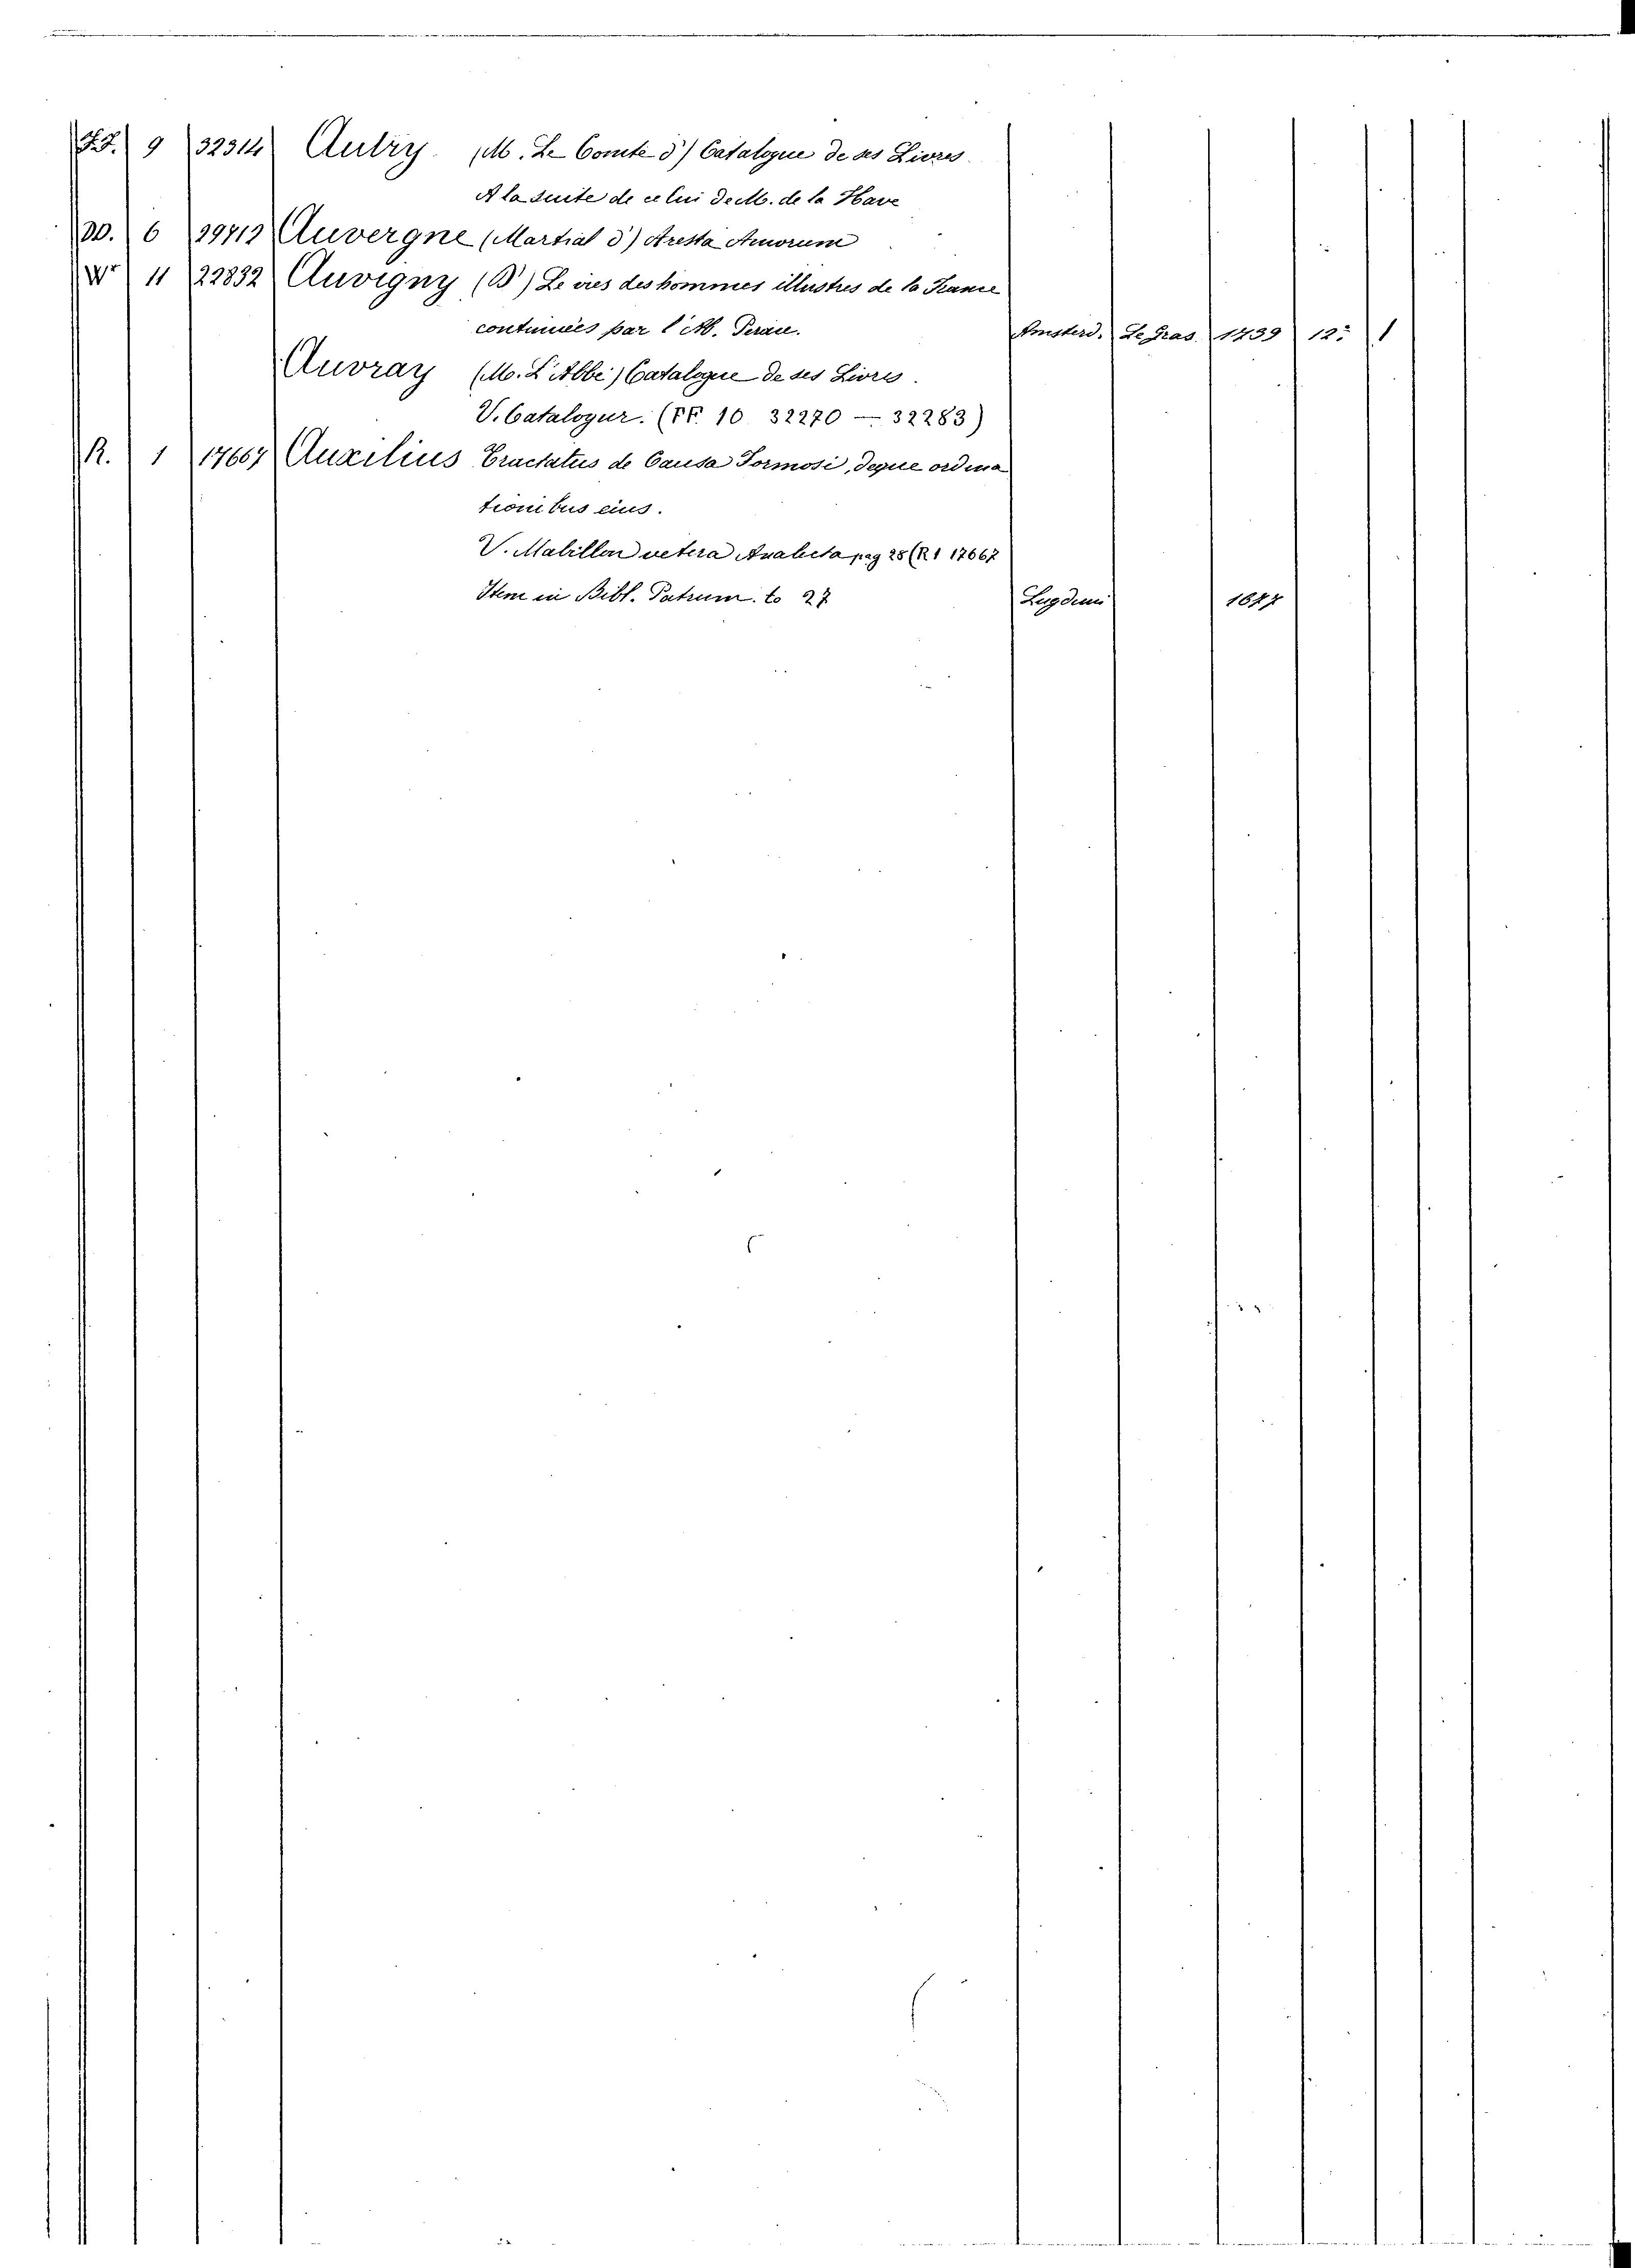 FF. 9 32314 Autry (M. Le Comte d') Catalogue de ses Livres
A la suite de celui de M. de la Haye
6 Auvergne (Martial d') Aresta Amorum
11 22832 Auvigny (D') Le vies des hommes illustres de la France
continuées par l'Ab. Perau. Amsterd. Le Gras 1739 12º 1
Auvray (M. L'Abbé) Catalogue de ses Livres.
V. Catalogur. (FF. 10 32270 — 32283)
R. 1 17667 Auxilius Tractatus de Causa Formosi, deque ordina
tionibus eius.
V. Mabillon vetera Analecta pag 28 (R 1 17667
Item in Bibl. Patrum. to 27 Lugduni 1677